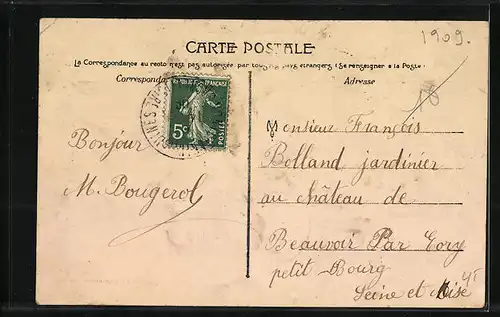 1909.
CARTE POSTALE
La Correspondance au recto n'est pas autorisée par tous les pays étrangers (Se renseigner à la Poste)
Correspondan
Adresse
RÉPUBLIQUE FRANÇAISE
5c
Bonjour
M. Bougerol
Monsieur François
Bolland jardinier
au château de
Beauvoir Par Evry
petit-Bourg
Seine et Oise